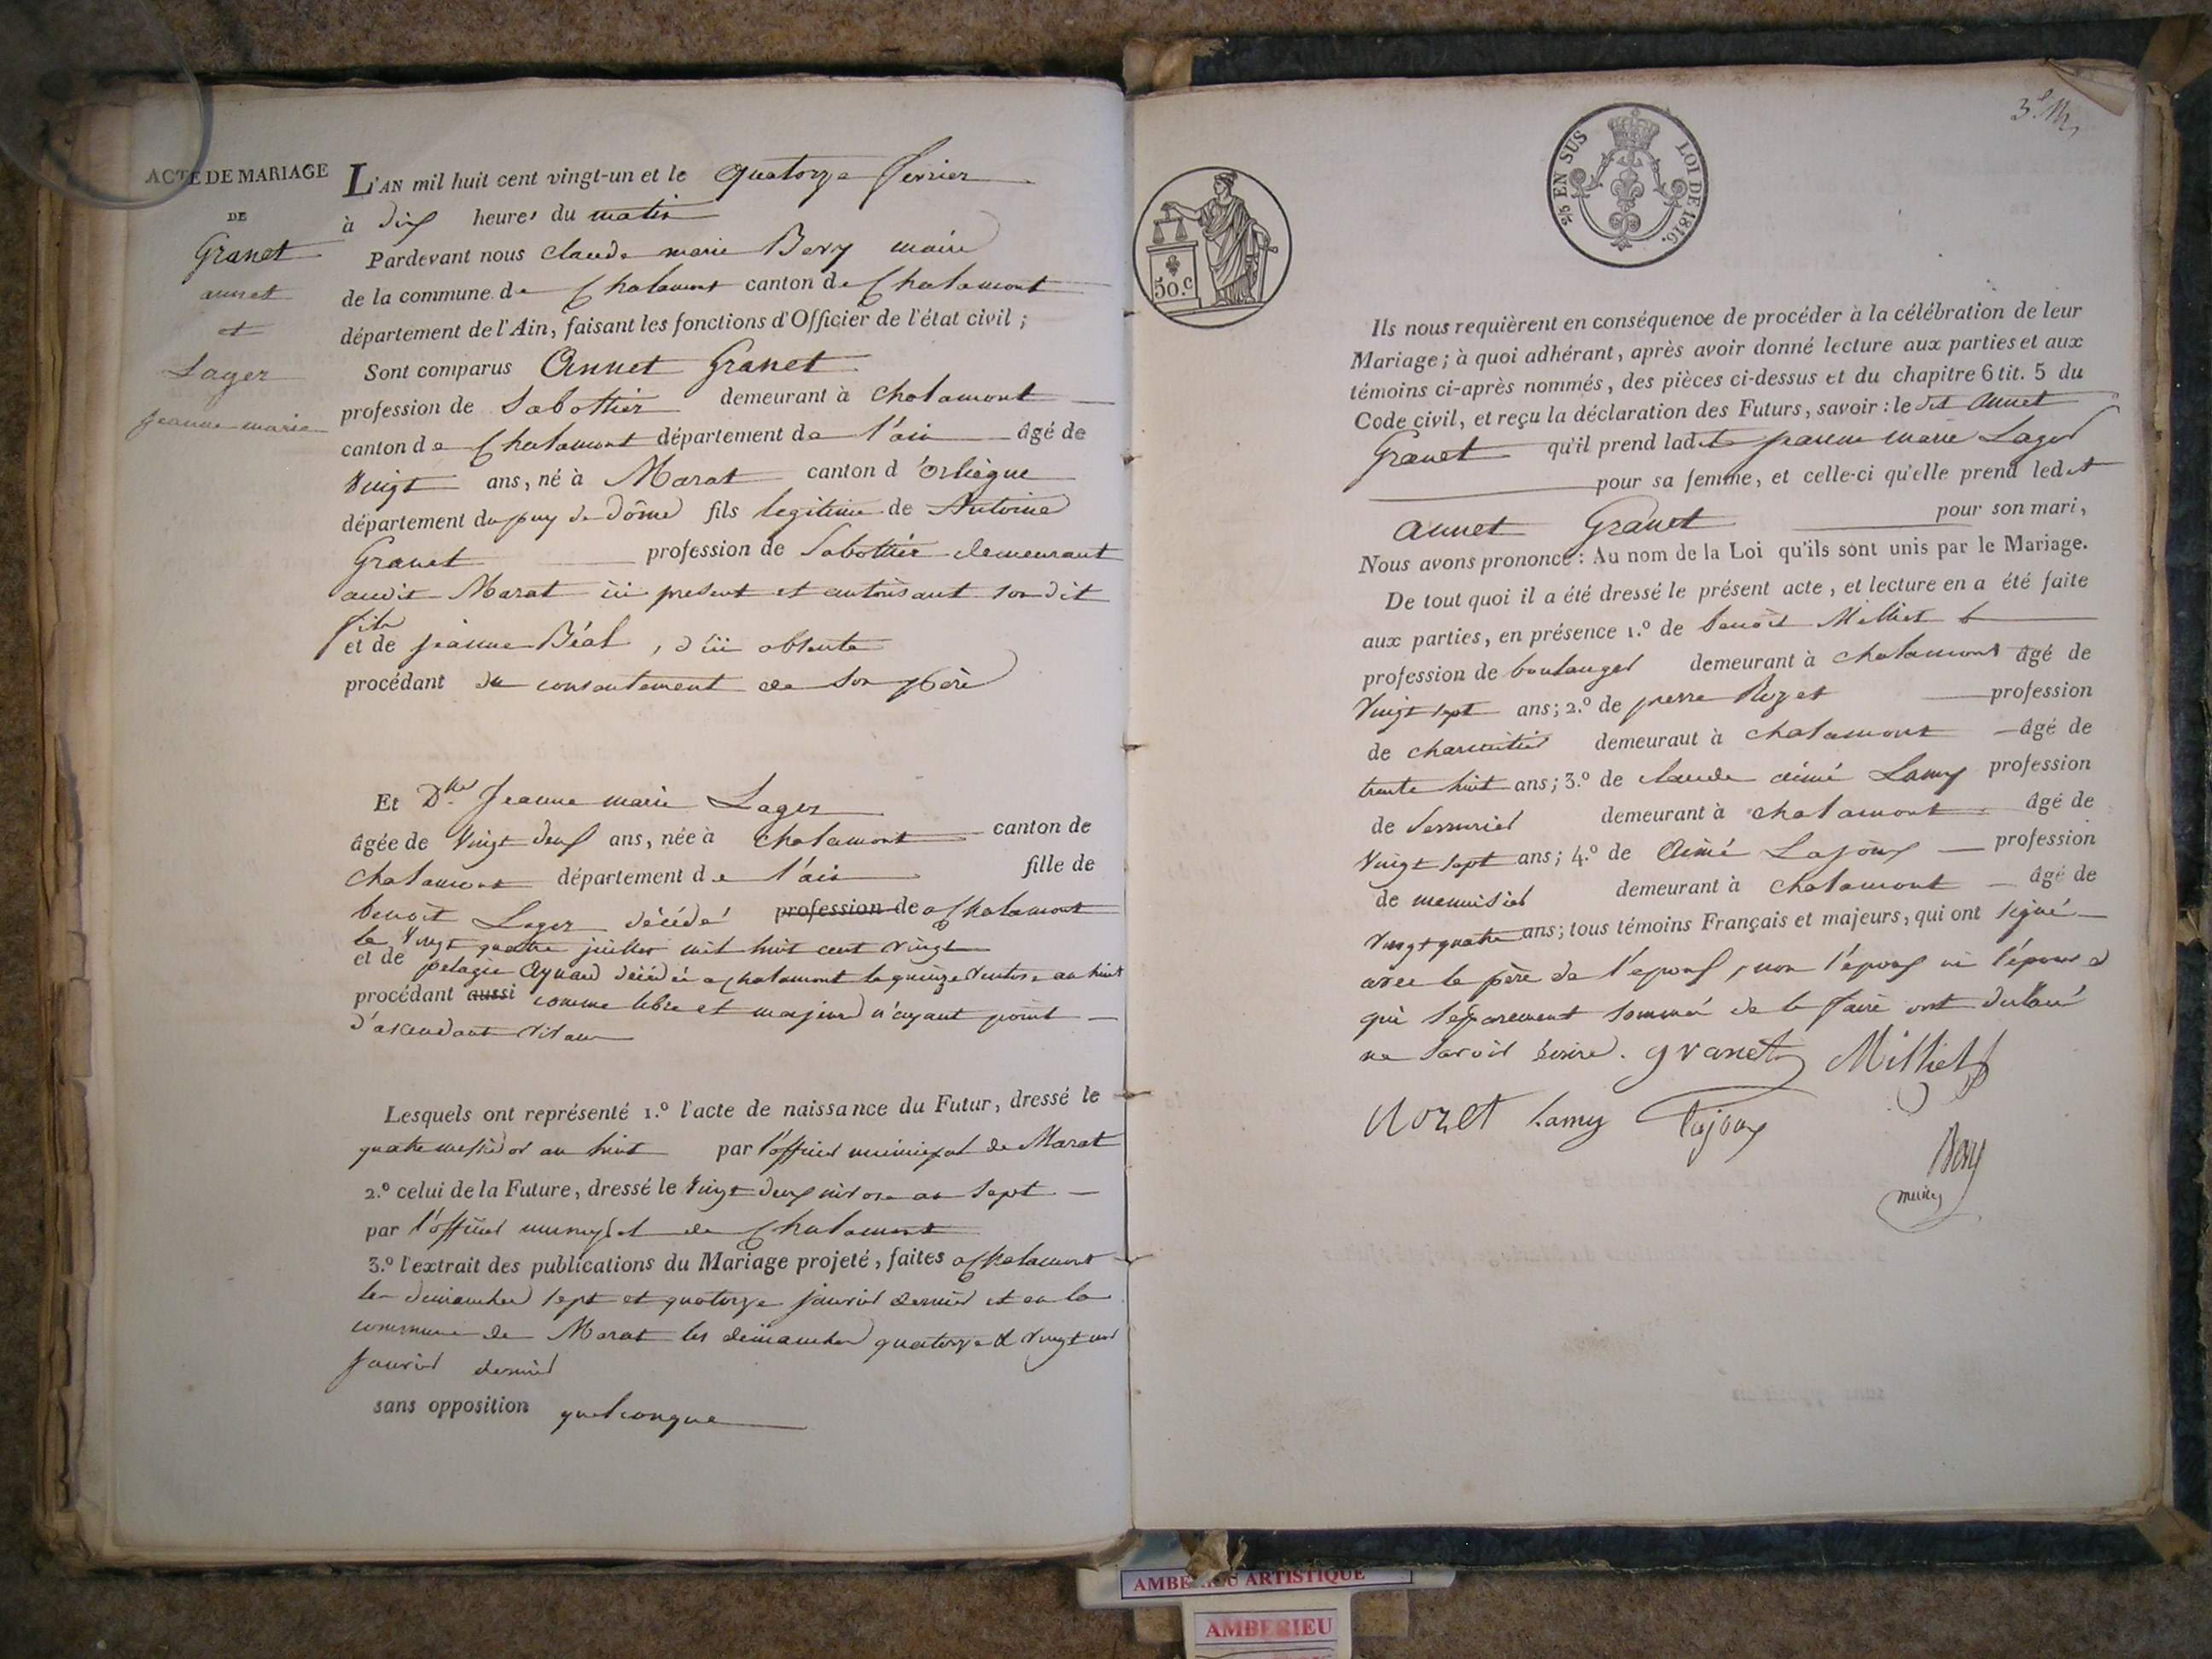 ACTE DE MARIAGE
DE
Granet
annet
et
Lager
jeanne marie
L'AN mil huit cent vingt-un et le quatorze fevrier
à dix heures du matin
Pardevant nous claude marie Bery maire
de la commune de Chalamont canton de Chalamont
département de l'Ain, faisant les fonctions d'Officier de l'état civil ;
Sont comparus Annet Granet
profession de Sabottier demeurant à chalamont
canton de Chalamont département de l'ain âgé de
Vingt ans, né à Marat canton d'Orliègue
département du puy de dôme fils legitime de Antoine
Granet profession de Sabottier demeurant
audit Marat ici present et autorisant son dit
fils
et de jeanne Béal, d'ici absente
procédant du consentement de son père
Et Dlle Jeanne marie Lager
âgée de Vingt deux ans, née à chalamont canton de
chalamont département de l'ain fille de
benoit Lager décédé profession de a Chalamont
le Vingt quatre juillet mil huit cent vingt
et de pelagie Aynard décédée a chalamont le quinze Ventose an huit
procédant aussi comme libre et majeure n'ayant point
d'ascendant vivan
Lesquels ont représenté 1.º l'acte de naissance du Futur, dressé le
quatre messidor an huit par l'officier municipal de Marat
2.º celui de la Future, dressé le Vingt deux nivose an Sept
par l'officier municipal de Chalamont
3.º l'extrait des publications du Mariage projeté, faites a Chalamont
les dimanches sept et quatorze janvier dernier et en la
commune de Marat les dimanches quatorze & vingt un
janvier dernier
sans opposition quelconque
3.e M.
EN SUS LOI DE 1816.
50.c
Ils nous requièrent en conséquence de procéder à la célébration de leur
Mariage ; à quoi adhérant, après avoir donné lecture aux parties et aux
témoins ci-après nommés, des pièces ci-dessus et du chapitre 6 tit. 5 du
Code civil, et reçu la déclaration des Futurs, savoir : le dit Annet
Granet qu'il prend ladite jeanne marie Lager
pour sa femme, et celle-ci qu'elle prend ledit
annet Granet pour son mari,
Nous avons prononcé : Au nom de la Loi qu'ils sont unis par le Mariage.
De tout quoi il a été dressé le présent acte, et lecture en a été faite
aux parties, en présence 1.º de benoit Milliet
profession de boulanger demeurant à chalamont âgé de
Vingt sept ans ; 2.º de pierre Rozet profession
de charcutier demeurant à chalamont âgé de
trente huit ans ; 3.º de claude aimé Lamy profession
de Serrurier demeurant à chalamont âgé de
Vingt Sept ans ; 4.º de Aimé Lajoux profession
de menuisier demeurant à chalamont âgé de
Vingt quatre ans ; tous témoins Français et majeurs, qui ont signé
avec le père de l'epoux, non l'époux ni l'épouse
qui séparement sommés de le faire ont declaré
ne savoir écrire. granet Milliet
Rozet Lamy Lajoux
Bery
maire
AMBERIEU ARTISTIQUE
AMBERIEU